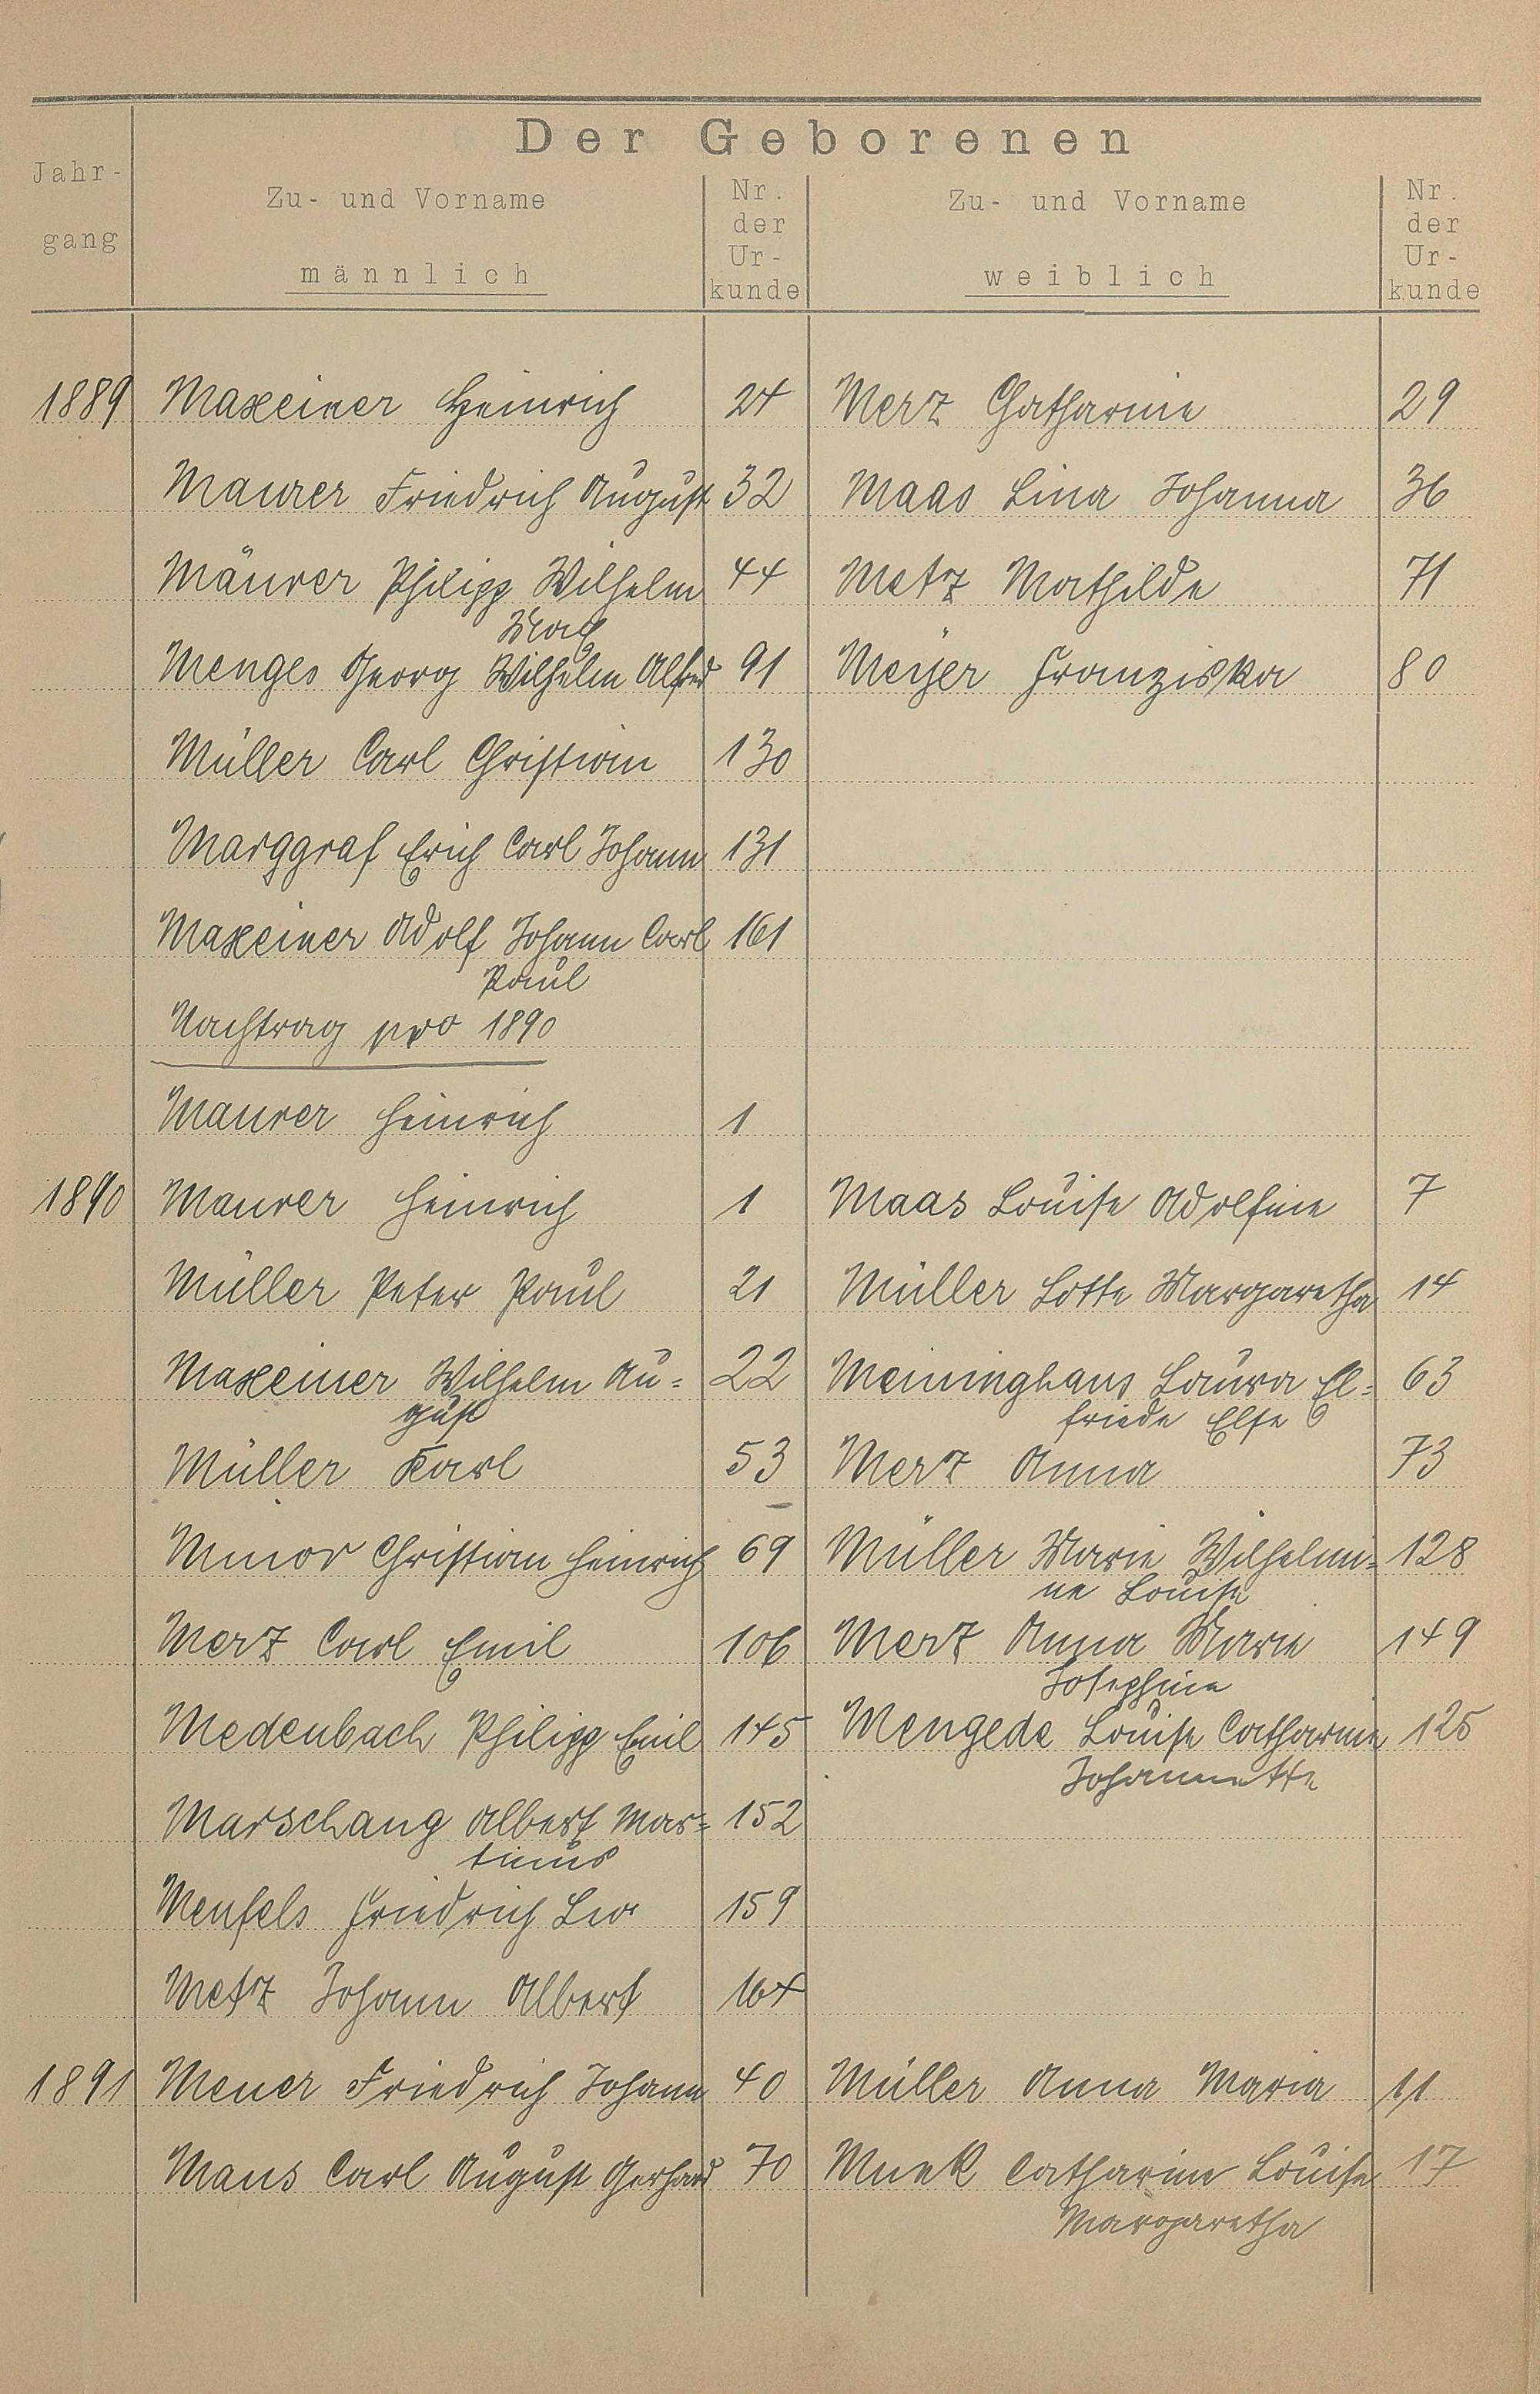 Der Geborenen
Jahr-
gang
Zu- und Vorname
männlich
Nr.
der
Ur-
kunde
Zu- und Vorname
weiblich
Nr.
der
Ur-
kunde
1889 Maxeiner Heinrich 24 Merz Chatharine 29
Maurer Friedrich August 32 Maas Lina Johanna 36
Mäurer Philipp Wilhelm 44 Metz Mathilde 71
Max
Menges Georg Wilhelm Alfred 91 Meÿer Franziska 80
Müller Carl Christian 130
Marggraf Erich Carl Johann 131
Maxeiner Adolf Johann Carl 161
Paul
Nachtrag pro 1890
Maurer Heinrich 1
1890 Maurer Heinrich 1 Maas Louise Adolfine 7
Müller Peter Paul 21 Müller Lotte Margaretha 14
Maxeiner Wilhelm Au= 22 Meininghaus Laura El= 63
gust friede Else
Müller Karl 53 Merz Anna 73
Minor Christian Heinrich 69 Müller Marie Wilhelmi= 128
ne Louise
Merz Carl Emil 106 Merz Anna Marie 149
Josephine
Medenbach Philipp Emil 145 Mengede Louise Catharine 125
Johannette
Marschang Albert Mar= 152
tinus
Menfels Friedrich Leo 159
Metz Johann Albert 164
1891 Meuer Friedrich Johann 40 Müller Anna Maria 11
Maus Carl August Gerhard 70 Munk Catharine Louise 17
Margaretha